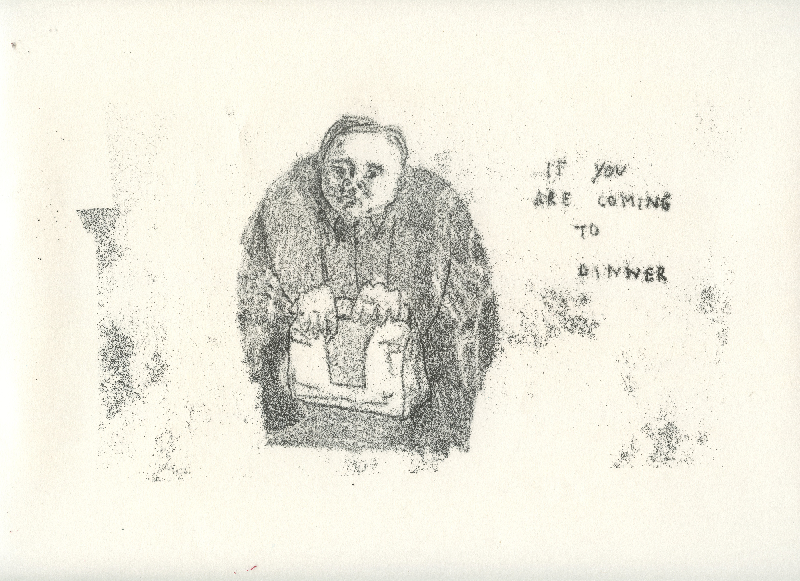 IF YOU
ARE COMING
TO
DINNER